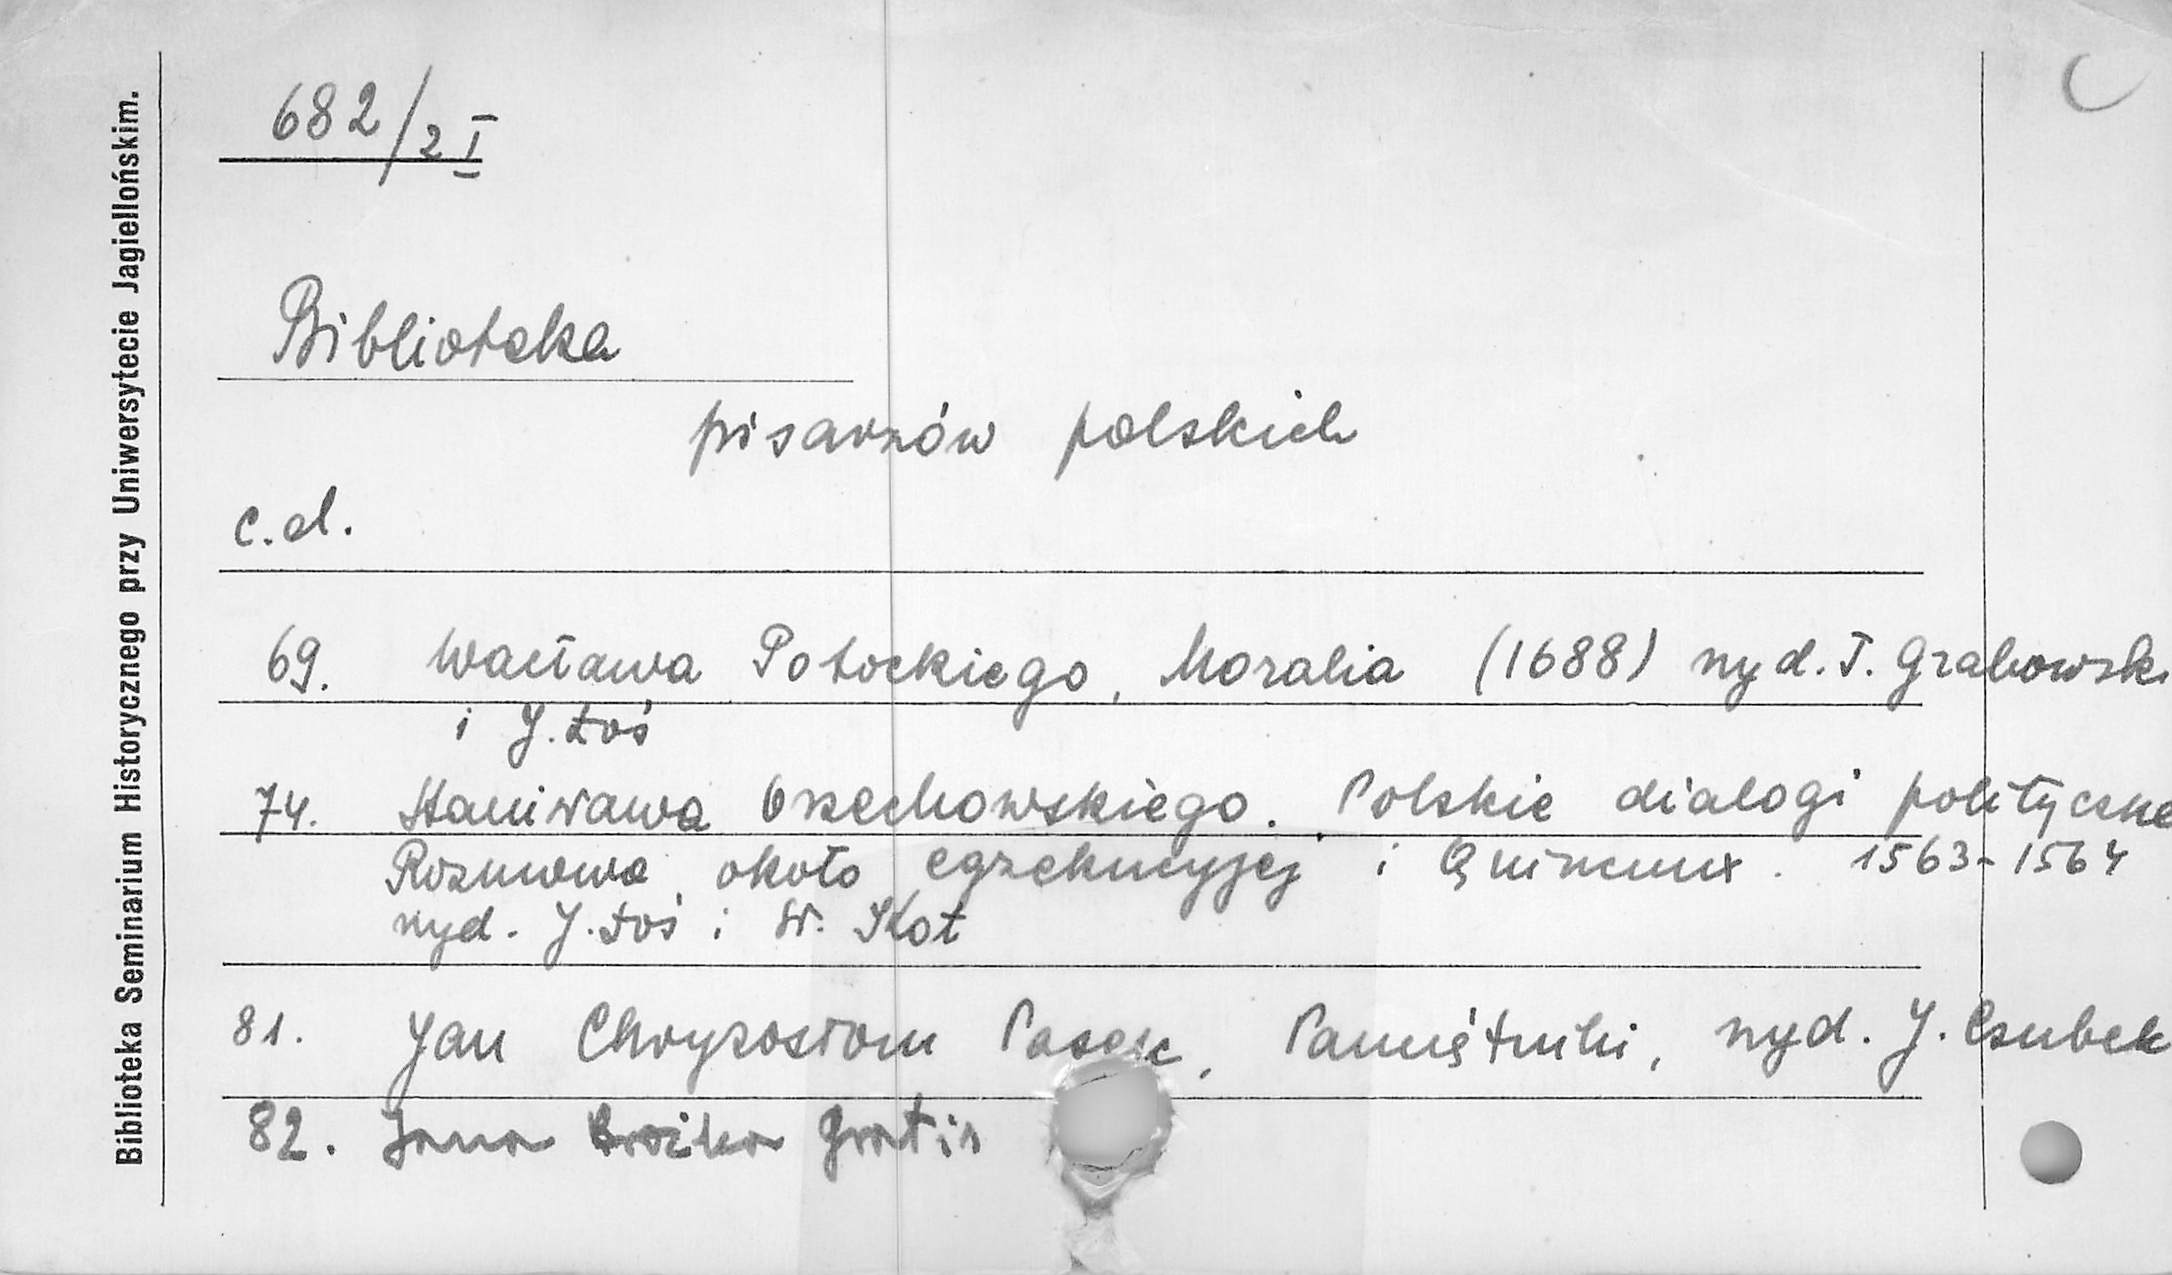 Biblioteka Seminarium Historycznego przy Uniwersytecie Jagiellońskim.
682/2 I
Biblioteka
pisarzów polskich
c.d.
69. Wacława Potockiego, Moralia (1688) wyd. T. Grabowski
i J. Łoś
74. Stanisława Orzechowskiego. Polskie dialogi polityczne
Rozmowa około egzekucyjej i Quincunx. 1563-1564
wyd. J. Łoś i St. Kot
81. Jan Chryzostom Pasek, Pamiętniki, wyd. J. Czubek
82. Jana Brożka Gratis